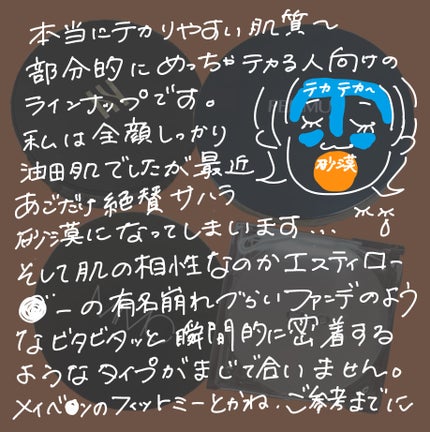 本当にテカりやすい肌質〜
部分的にめっちゃテカる人向けの
ラインナップです。
テカテカ〜
私は全顔しっかり
油田肌でしたが最近
砂漠
あごだけ絶賛サハラ
砂漠になってしまいます...
そして肌の相性なのかエスティロー
●ーの有名崩れづらいファンデのよう
なビタビタッと瞬間的に密着する
ようなタイプがまじで合いません。
メイベ●ンのフィットミーとかね。ご参考までに